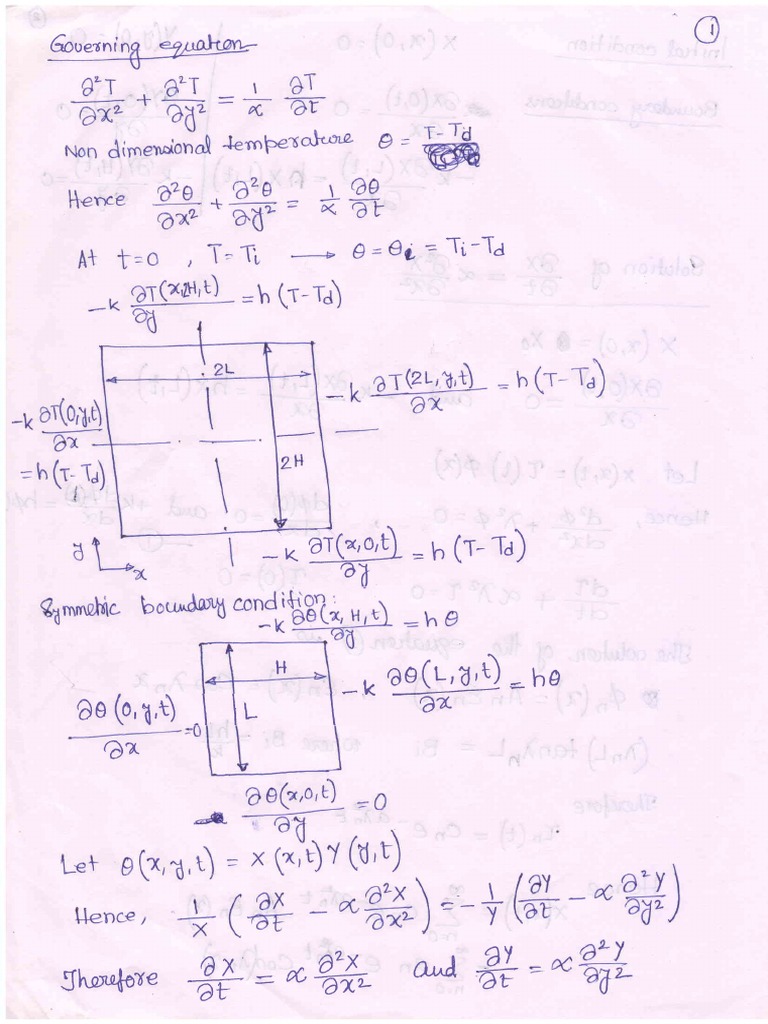 1
Governing equation
∂²T/∂x² + ∂²T/∂y² = 1/α ∂T/∂t
Non dimensional temperature θ = T-Td
Hence ∂²θ/∂x² + ∂²θ/∂y² = 1/α ∂θ/∂t
At t=0 , T=Ti → θ=θi = Ti-Td
-k ∂T(x,2H,t)/∂y = h(T-Td)
2L
-k ∂T(2L,y,t)/∂x = h(T-Td)
-k ∂T(0,y,t)/∂x = h(T-Td)
2H
y
x
-k ∂T(x,0,t)/∂y = h(T-Td)
Symmetric boundary condition:
-k ∂θ(x,H,t)/∂y = hθ
H
-k ∂θ(L,y,t)/∂x = hθ
∂θ(0,y,t)/∂x = 0
L
∂θ(x,0,t)/∂y = 0
Let θ(x,y,t) = X(x,t) Y(y,t)
Hence, 1/X (∂X/∂t - α ∂²X/∂x²) = -1/Y (∂Y/∂t - α ∂²Y/∂y²)
Therefore ∂X/∂t = α ∂²X/∂x² and ∂Y/∂t = α ∂²Y/∂y²